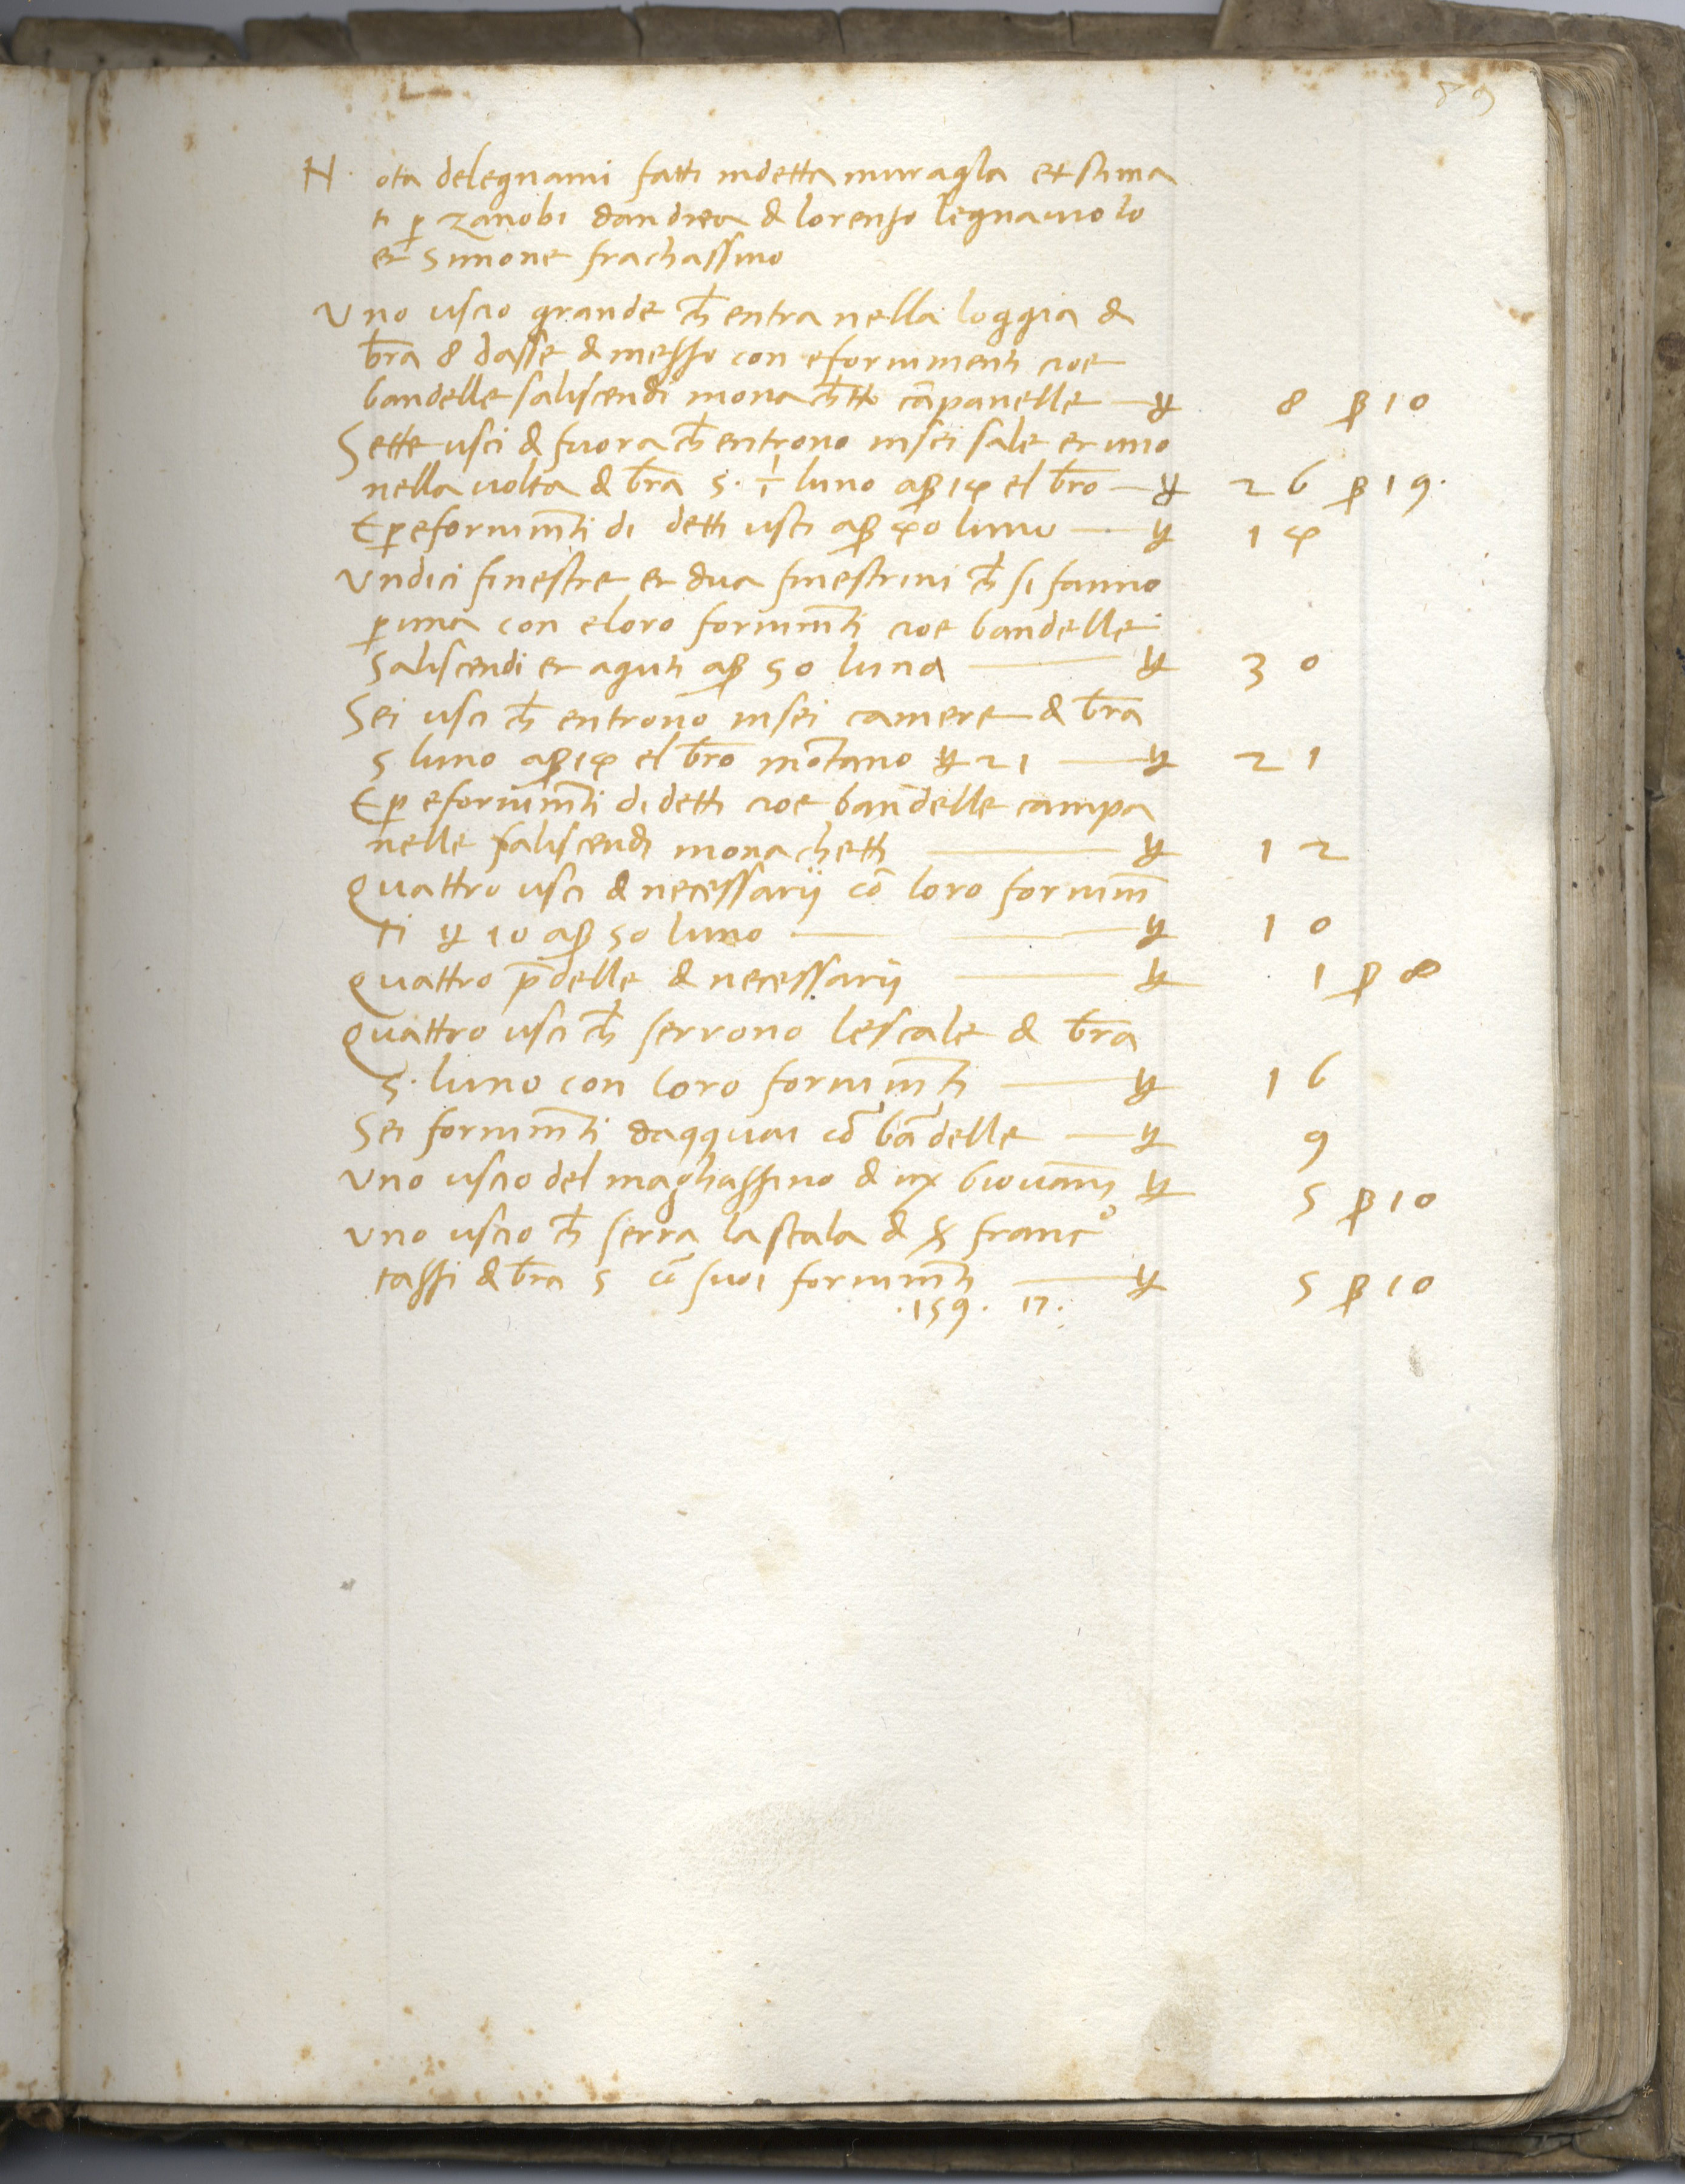 89
N. ota delegnami fatti indetta muragla et stima
ti p̱ zanobi dandrea & lorenzo legnaiuolo
et simone frachassino
Uno uscio grande ch̄ entra nella loggia &
br̄a 8 dasse & mezzo con efornimenti cioe
bandelle saliscendi monach̄tto cāpanelle — ∀ 8 β 10
Sette usci & fuora ch̄ entrono insei sale et uno
nella volta & br̄a 5. ½ luno aβ 14 el br̄o — ∀ 26 β 19.
E p̱ efornim̄ti di detti usci aβ 40 luno — ∀ 14
Undici finestre et dua finestrini ch̄ si fanno
p̱ una con eloro fornim̄ti cioe bandelle
saliscendi et aguti aβ 50 luna — ∀ 30
Sei usci ch̄ entrono insei camere & br̄a
5 luno aβ 14 el br̄o mōtano ∀ 21 — ∀ 21
E p̱ efornim̄ti di detti cioe bandelle campa
nelle saliscendi monachetti — ∀ 12
Quattro usci & necessarij cō loro fornim̄
ti ∀ 10 aβ 50 luno — ∀ 10
Quattro p̄delle & necessarij — ∀ 1 β 8
Quattro usci ch̄ serrono lescale & br̄a
5. luno con loro fornim̄ti — ∀ 16
Sei fornim̄ti dacquai cō bādelle — ∀ 9
Uno uscio del maghazzino & Giovāni ∀ 5 β 10
Uno uscio ch̄ serra la scala & franc°
tassi & br̄a 5 cō suoi fornim̄ti — ∀ 5 β 10
.159. 17.